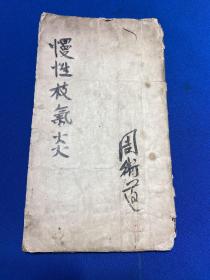 慢性枝氣炎
周術道